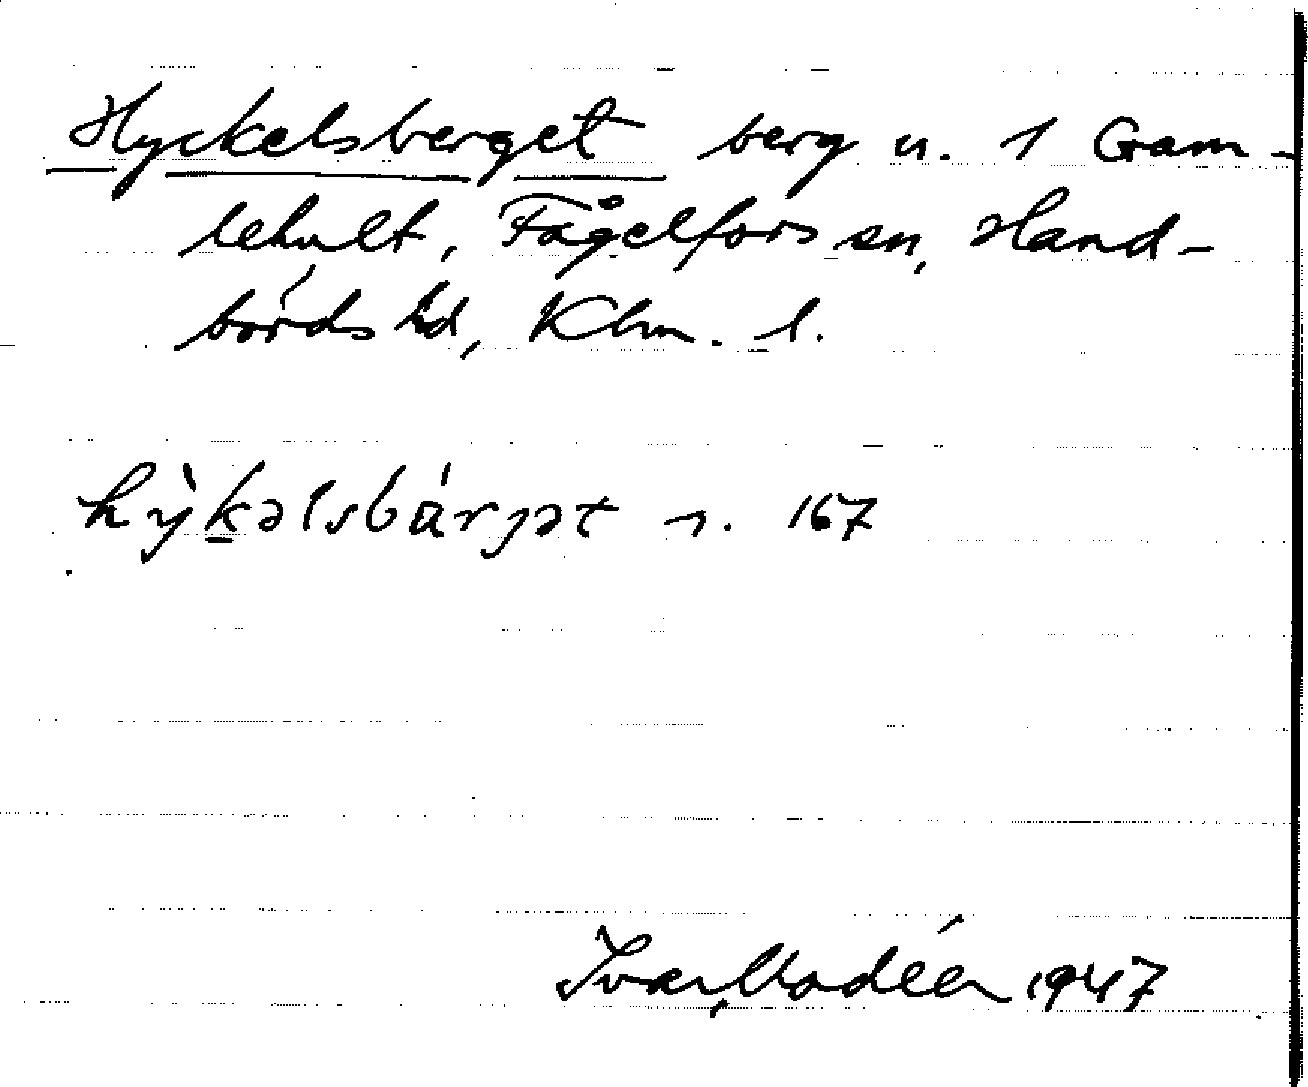 Hyckelsberget berg u. 1 Gam-
lehult, Fågelfors sn, Hand-
börds hd, Klm. l.
hỳ̛kəlsbár̡jət s. 167
Ivar Modéer 1947